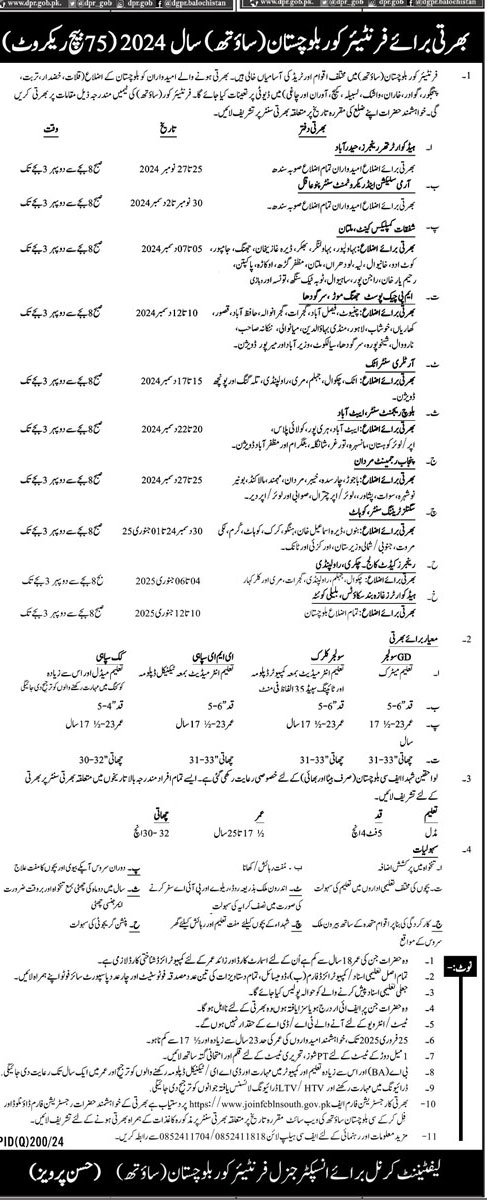 www.dpr.gob.pk dpr_gob @dpr_gob @dgpr.balochistan
بھرتی برائے فرنٹیئر کور بلوچستان (ساؤتھ) سال 2024 (75 بیچ ریکروٹ)
1- فرنٹیئر کور بلوچستان (ساؤتھ) میں مختلف اقوام اور ٹریڈ کی آسامیاں خالی ہیں۔ بھرتی ہونے والے امیدواران کو بلوچستان کے اضلاع (قلات، خضدار، تربت،
پنجگور، گوادر، خاران، واشک، لسبیلہ، کیچ، آواران اور چاغی) میں ڈیوٹی پر تعینات کیا جائے گا۔ فرنٹیئر کور (ساؤتھ) کی ٹیمیں مندرجہ ذیل مقامات پر بھرتی کریں
گی۔ خواہشمند حضرات اپنے ضلع کی مقررہ تاریخ پر متعلقہ بھرتی سنٹر پر تشریف لائیں۔
بھرتی دفتر تاریخ وقت
ا۔ ہیڈ کوارٹر تھر رینجرز، حیدرآباد
بھرتی برائے اضلاع امیدواران تمام اضلاع صوبہ سندھ 25 تا 27 نومبر 2024 صبح 8 بجے سے دوپہر 3 بجے تک
ب۔ آرمی سلیکشن اینڈ ریکروٹمنٹ سنٹر پنوں عاقل
بھرتی برائے اضلاع امیدواران تمام اضلاع صوبہ سندھ۔ 30 نومبر تا 2 دسمبر 2024 صبح 8 بجے سے دوپہر 3 بجے تک
پ۔ شفقات کمپلیکس کینٹ، ملتان
بھرتی برائے اضلاع: بہاولپور، بہاولنگر، بھکر، ڈیرہ غازیخان، جھنگ، جامپور، 05 تا 07 دسمبر 2024 صبح 8 بجے سے دوپہر 3 بجے تک
کوٹ ادو، خانیوال، لیہ، لودھراں، ملتان، مظفر گڑھ، اوکاڑہ، پاکپتن،
رحیم یار خان، راجن پور، ساہیوال، ٹوبہ ٹیک سنگھ، تونسہ اور وہاڑی
ت۔ ایم پی چیک پوسٹ جھنگ موڑ، سرگودھا
بھرتی برائے اضلاع: چنیوٹ، فیصل آباد، گجرات، گجرانوالہ، حافظ آباد، قصور، 10 تا 12 دسمبر 2024 صبح 8 بجے سے دوپہر 3 بجے تک
کھاریاں، خوشاب، لاہور، منڈی بہاؤالدین، میانوالی، ننکانہ صاحب،
نارووال، شیخوپورہ، سرگودھا، سیالکوٹ، وزیر آباد اور میرپور ڈویژن۔
ٹ۔ آرٹلری سنٹر اٹک
بھرتی برائے اضلاع: اٹک، چکوال، جہلم، مری، راولپنڈی، تلہ گنگ اور پونچھ 15 تا 17 دسمبر 2024 صبح 8 بجے سے دوپہر 3 بجے تک
ڈویژن۔
ث۔ بلوچ رجمنٹ سنٹر، ایبٹ آباد
بھرتی برائے اضلاع: ایبٹ آباد، ہری پور، بٹگرام، کولائی پالاس، 20 تا 22 دسمبر 2024 صبح 8 بجے سے دوپہر 3 بجے تک
اپر/لوئر کوہستان، مانسہرہ، تورغر، شانگلہ، بٹگرام اور مظفر آباد ڈویژن۔
ج۔ پنجاب رجمنٹ مردان
بھرتی برائے اضلاع: باجوڑ، چارسدہ، خیبر، مردان، مہمند، مالاکنڈ، بونیر 25 تا 27 دسمبر 2024 صبح 8 بجے سے دوپہر 3 بجے تک
نوشہرہ، سوات، پشاور، لوئر/اپر چترال، صوابی اور لوئر/اپر دیر۔
چ۔ سگنلز ٹریننگ سنٹر، کوہاٹ
بھرتی برائے اضلاع: بنوں، ڈیرہ اسماعیل خان، ہنگو، کرک، کوہاٹ، کرم، لکی 30 دسمبر 24 تا 01 جنوری 25 صبح 8 بجے سے دوپہر 3 بجے تک
مروت، جنوبی/شمالی وزیرستان، اورکزئی اور ٹانک۔
ح۔ رینجرز کیڈٹ کالج، چکری، راولپنڈی
بھرتی برائے اضلاع: چکوال، جہلم، راولپنڈی، گجرات، مری اور کلر کہار 04 تا 06 جنوری 2025 صبح 8 بجے سے دوپہر 3 بجے تک
خ۔ ہیڈ کوارٹرز غازہ بند سکاؤٹس، بلیلی کوئٹہ
بھرتی برائے اضلاع: تمام اضلاع بلوچستان 10 تا 12 جنوری 2025 صبح 8 بجے سے دوپہر 3 بجے تک
2- معیار برائے بھرتی
GD سولجر سولجر کلرک ای ایم ای سپاہی کک سپاہی
ا۔ تعلیم میٹرک تعلیم انٹرمیڈیٹ بمعہ کمپیوٹر ڈپلومہ تعلیم انٹرمیڈیٹ بمعہ ٹیکنیکل ڈپلومہ تعلیم مڈل اور اس سے زیادہ
اور ٹائپنگ سپیڈ 35 الفاظ فی منٹ کوکنگ میں مہارت رکھنے والوں کو ترجیح دی جائیگی
ب۔ قد "6-5 قد "6-5 قد "6-5 قد "4-5
پ۔ عمر 23-½ 17 عمر 23-½ 17 سال عمر 23-½ 17 سال عمر 23-½ 17 سال
سال
ت۔ چھاتی "33-31 چھاتی "33-31 چھاتی "33-31 چھاتی "32-30
3- لواحقین شہدا ایف سی بلوچستان (صرف بیٹا اور بھائی) کے لئے خصوصی رعایت رکھی گئی ہے۔ ایسے تمام افراد مندرجہ بالا تاریخوں میں متعلقہ بھرتی سنٹر پر بھرتی
کے لئے تشریف لائیں۔
تعلیم قد عمر چھاتی
مڈل 5 فٹ 4 انچ ½ 17 تا 25 سال 32 -30 انچ
4- سہولیات
ا۔ تنخواہ میں پرکشش اضافہ ب۔ مفت رہائش/کھانا پ۔ دوران سروس آپکے بیوی اور بچوں کا مفت علاج
ت۔ بچوں کی مختلف تعلیمی اداروں میں تعلیم کی سہولت ٹ۔ اندرون ملک بذریعہ روڈ، ریلوے اور پی آئی اے سفر کرنے ث۔ سال میں دو ماہ کی چھٹی بمع تنخواہ اور بروقت ضرورت
کی صورت میں نصف کرایہ کی سہولت ایمرجنسی چھٹی
ج۔ کارکردگی کی بنا پر اقوام متحدہ کے ساتھ بیرون ملک چ۔ شہداء کے بچوں کیلئے مفت تعلیم اور رہائش کیلئے گھر ح۔ پنشن گریجوٹی کی سہولت
سروس کے مواقع
نوٹ:-
1- وہ حضرات جن کی عمر 18 سال سے کم ہے اُن کے لئے اسمارٹ کارڈ اور زائد عمر کے لئے کمپیوٹرائزڈ شناختی کارڈ لازمی ہے۔
2- تمام اصل تعلیمی اسناد/کمپیوٹرائزڈ فارم (ب)، ڈومیسائل، تمام دستاویزات کی تین عدد مصدقہ فوٹو سٹیٹ اور چار عدد پاسپورٹ سائز فوٹو اپنے ہمراہ لائیں۔
3- جعلی تعلیمی اسناد پیش کرنے والے کو حوالہ پولیس کیا جائے گا۔
4- وہ حضرات جن پر ایف آئی آر درج ہو یا سزا یافتہ ہوں وہ بھرتی کے لئے نااہل ہونگے۔
5- ٹیسٹ/انٹرویو کے لئے آنے والے ٹی اے/ڈی اے کے حقدار نہیں ہوں گے۔
6- 25 فروری 2025 تک، خواہشمند امیدواروں کی عمر کی حد 23 سال سے زیادہ اور ½ 17 سے کم نہ ہو۔
7- 1 میل دوڑ کے ٹیسٹ کے لئے PT شوز، تحریری ٹیسٹ کے لئے قلم اور امتحانی گتہ ساتھ لائیں۔
8- بی اے (BA) اور اس سے زیادہ تعلیم اور کمپیوٹر میں مہارت اور ڈی اے ای/ٹیکنیکل ڈپلومہ رکھنے والوں کو ترجیح اور عمر میں ایک سال تک رعایت دی جائیگی۔
9- ڈرائیونگ میں مہارت رکھنے اور LTV/ HTV ڈرائیونگ لائسنس یافتہ جوانوں کو ترجیح دی جائیگی۔
10- بھرتی کا رجسٹریشن فارم ایف https://www.joinfcblnsouth.gov.pk پر دستیاب ہے بھرتی کے خواہشمند حضرات رجسٹریشن فارم ڈاؤنلوڈ اور
فِل کر کے سی بلوچستان ساؤتھ کی ویب سائٹ مقررہ تاریخ پر متعلقہ بھرتی سنٹر پر مذکورہ کاغذات کے ہمراہ بھرتی ہونے کے لئے تشریف لائیں۔
11- مزید معلومات اور رہنمائی کے لئے ایف سی ہیلپ لائن 0852411704/0852411818 سے رابطہ کریں۔
PID(Q)200/24
لیفٹیننٹ کرنل برائے انسپکٹر جنرل فرنٹیئر کور بلوچستان (ساؤتھ) (حسن پرویز)